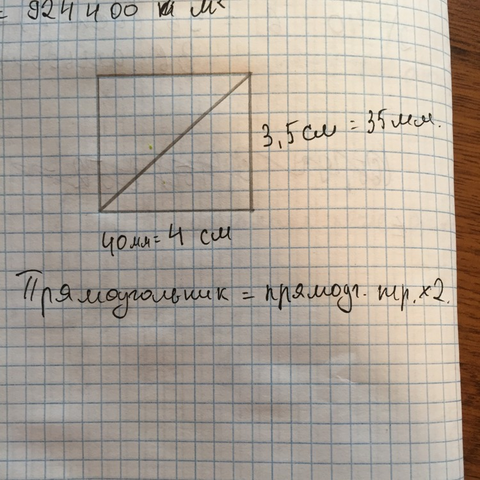 = 924 400 м²
3,5 см = 35 мм.
40 мм = 4 см
Прямоугольник = прямоуг. тр. × 2.